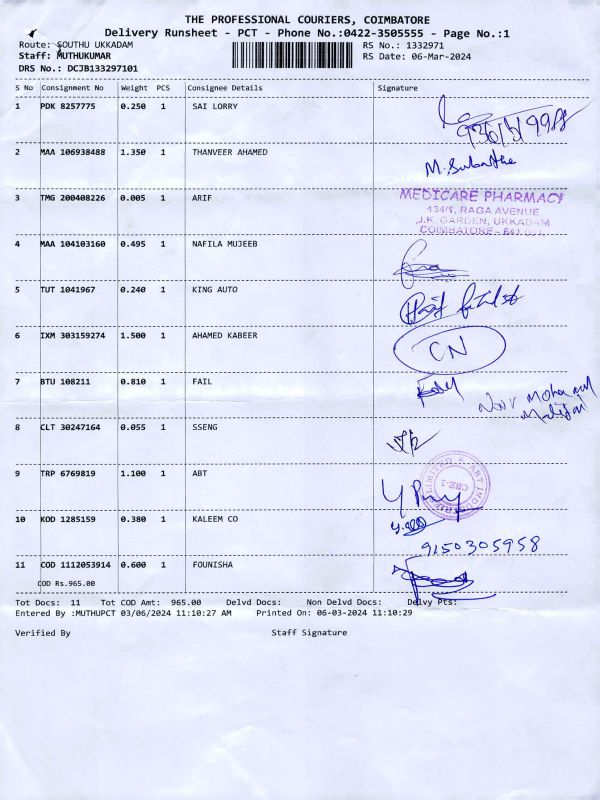 THE PROFESSIONAL COURIERS, COIMBATORE
Delivery Runsheet - PCT - Phone No.:0422-3505555 - Page No.:1
Route: SOUTHU UKKADAM RS No.: 1332971
Staff: MUTHUKUMAR RS Date: 06-Mar-2024
DRS No.: DCJB133297101
S No Consignment No Weight PCS Consignee Details Signature
1 PDK 8257775 0.250 1 SAI LORRY
2 MAA 106938488 1.350 1 THANVEER AHAMED
3 TMG 200408226 0.005 1 ARIF MEDICARE PHARMACY
134/1, RAGA AVENUE
J.K. GARDEN, UKKADAM
COIMBATORE - 641
4 MAA 104103160 0.495 1 NAFILA MUJEEB
5 TUT 1041967 0.240 1 KING AUTO
6 IXM 303159274 1.500 1 AHAMED KABEER CN
7 BTU 108211 0.810 1 FAIL
8 CLT 30247164 0.055 1 SSENG
9 TRP 6769819 1.100 1 ABT CBE-1
10 KOD 1285159 0.380 1 KALEEM CO
9150305958
11 COD 1112053914 0.600 1 FOUNISHA
COD Rs.965.00
Tot Docs: 11 Tot COD Amt: 965.00 Delvd Docs: Non Delvd Docs: Delvy Pts:
Entered By :MUTHUPCT 03/06/2024 11:10:27 AM Printed On: 06-03-2024 11:10:29
Verified By Staff Signature